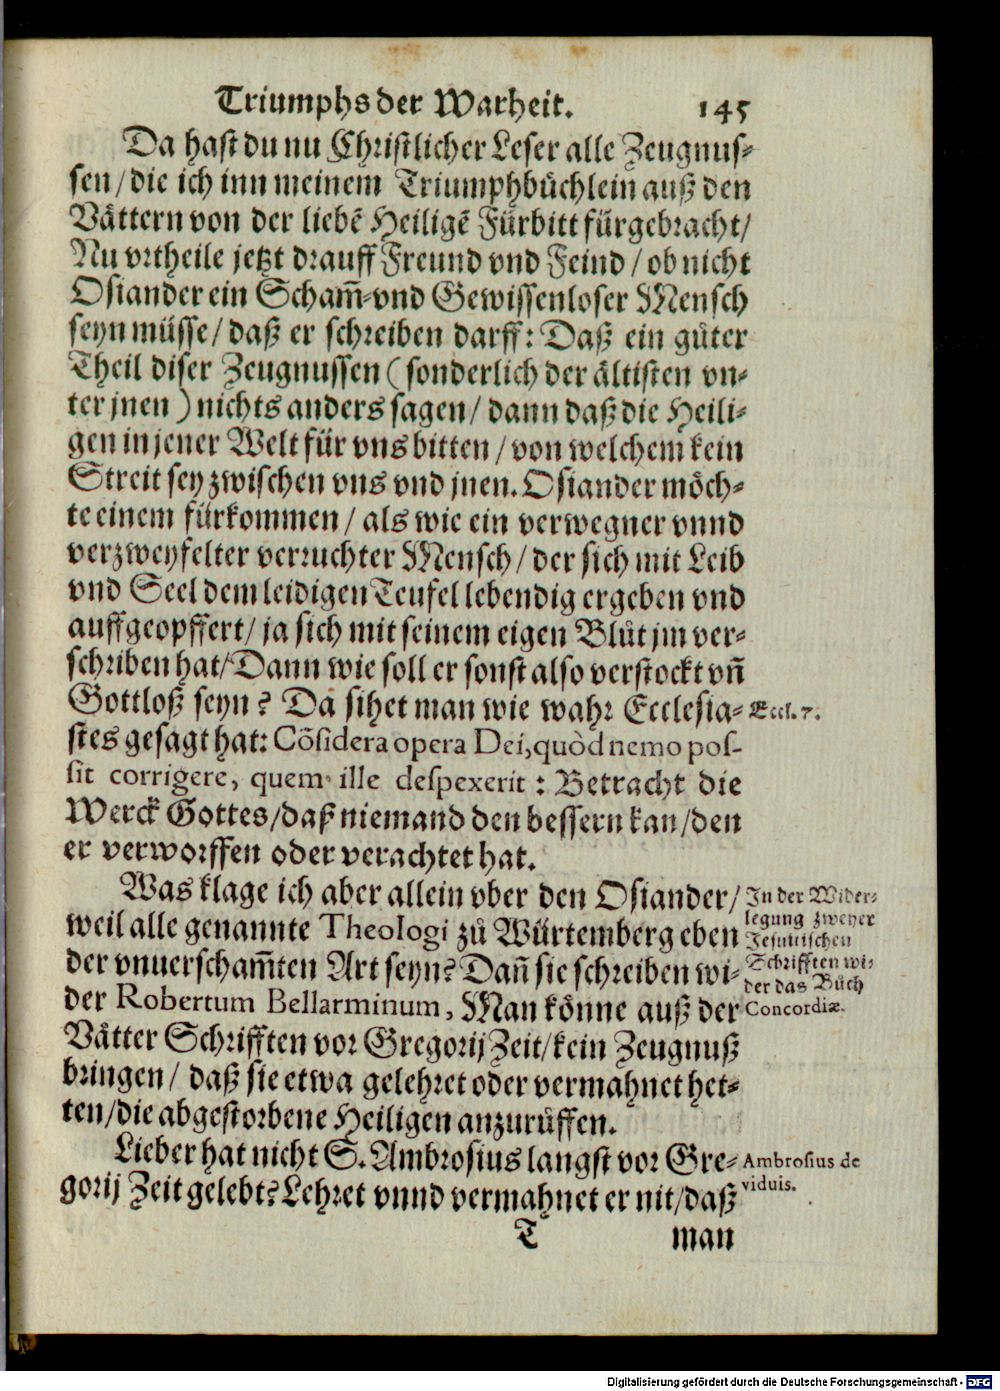 Triumphs der Warheit. 145
Da hast du nu Christlicher Leser alle Zeugnus-
sen/die ich inn meinem Triumphbüchlein auß den
Vättern von der liebẽ Heiligẽ Fürbitt fürgebracht/
Nu vrtheile jetzt drauff Freund vnd Feind/ob nicht
Osiander ein Scham̃-vnd Gewissenloser Mensch
seyn müsse/daß er schreiben darff: Daß ein gůter
Theil diser Zeugnussen (sonderlich der ältisten vn-
ter jnen) nichts anders sagen/dann daß die Heili-
gen in jener Welt für vns bitten/von welchem kein
Streit sey zwischen vns vnd jnen. Osiander möch-
te einem fürkommen/als wie ein verwegner vnnd
verzweyfelter verruchter Mensch/der sich mit Leib
vnd Seel dem leidigen Teufel lebendig ergeben vnd
auffgeopffert/ja sich mit seinem eigen Blůt jm ver-
schriben hat/Dann wie soll er sonst also verstockt vñ
Gottloß seyn? Da sihet man wie wahr Ecclesia-
Eccl. 7.
stes gesagt hat: Cõsidera opera Dei, quòd nemo pos-
sit corrigere, quem ille despexerit: Betracht die
Werck Gottes/daß niemand den bessern kan/den
er verworffen oder verachtet hat.
Was klage ich aber allein vber den Osiander/
weil alle genannte Theologi zů Würtemberg eben
der vnuerscham̃ten Art seyn? Dañ sie schreiben wi-
der Robertum Bellarminum, Man könne auß der
Vätter Schrifften vor Gregorij Zeit/kein Zeugnuß
bringen/daß sie etwa gelehret oder vermahnet het-
ten/die abgestorbene Heiligen anzurůffen.
In der Wider-
legung zweyer
Jesuitischen
Schrifften wi-
der das Bůch
Concordiæ.
Lieber hat nicht S. Ambrosius langst vor Gre-
gorij Zeit gelebt? Lehret vnnd vermahnet er nit/daß
Ambrosius de
viduis.
T man
Digitalisierung gefördert durch die Deutsche Forschungsgemeinschaft - DFG